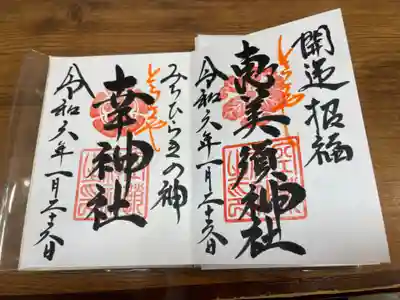 開運招福
恵美須神社
令和六年一月二十六日
みちひらきの神
幸神社
令和六年一月二十六日